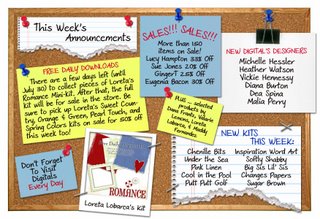 This Week's
Announcements
SALES!!! SALES!!!
More than 1,150
items on Sale!
Lucy Hampton 33% Off
Sue Jones 20% Off
GingerT 25% Off
Eugenia Bacon 30% Off
NEW DIGITAL'S DESIGNERS
Michelle Hessler
Heather Watson
Vickie Hennessy
Diana Burton
Dea Spina
Malia Perry
FREE DAILY DOWNLOADS
There are a few days left (until
July 30) to collect pieces of Loreta's
Romance Mini-Kit. After that, the full
kit will be for sale in the store. Be
sure to pick up Loreta's Sweet Coun-
try, Orange & Green, Pearl Touch, and
Spring Colors kits on sale for 50% off
this week too!
PLUS - selected
products by
Dana Franks,
Leanna,
Loreta
Labarca, & Maddy
Fernandes
NEW KITS
THIS WEEK:
Chenille Bits
Under the Sea
Pink Linen
Cool in the Pool
Putt Putt Golf
Inspiration Word Art
Softly Shabby
Big Sis Lil' Sis
Changes Papers
Sugar Brown
Don't Forget
To Visit
Digitals
Every Day
ROMANCE
Loreta Labarca's Kit